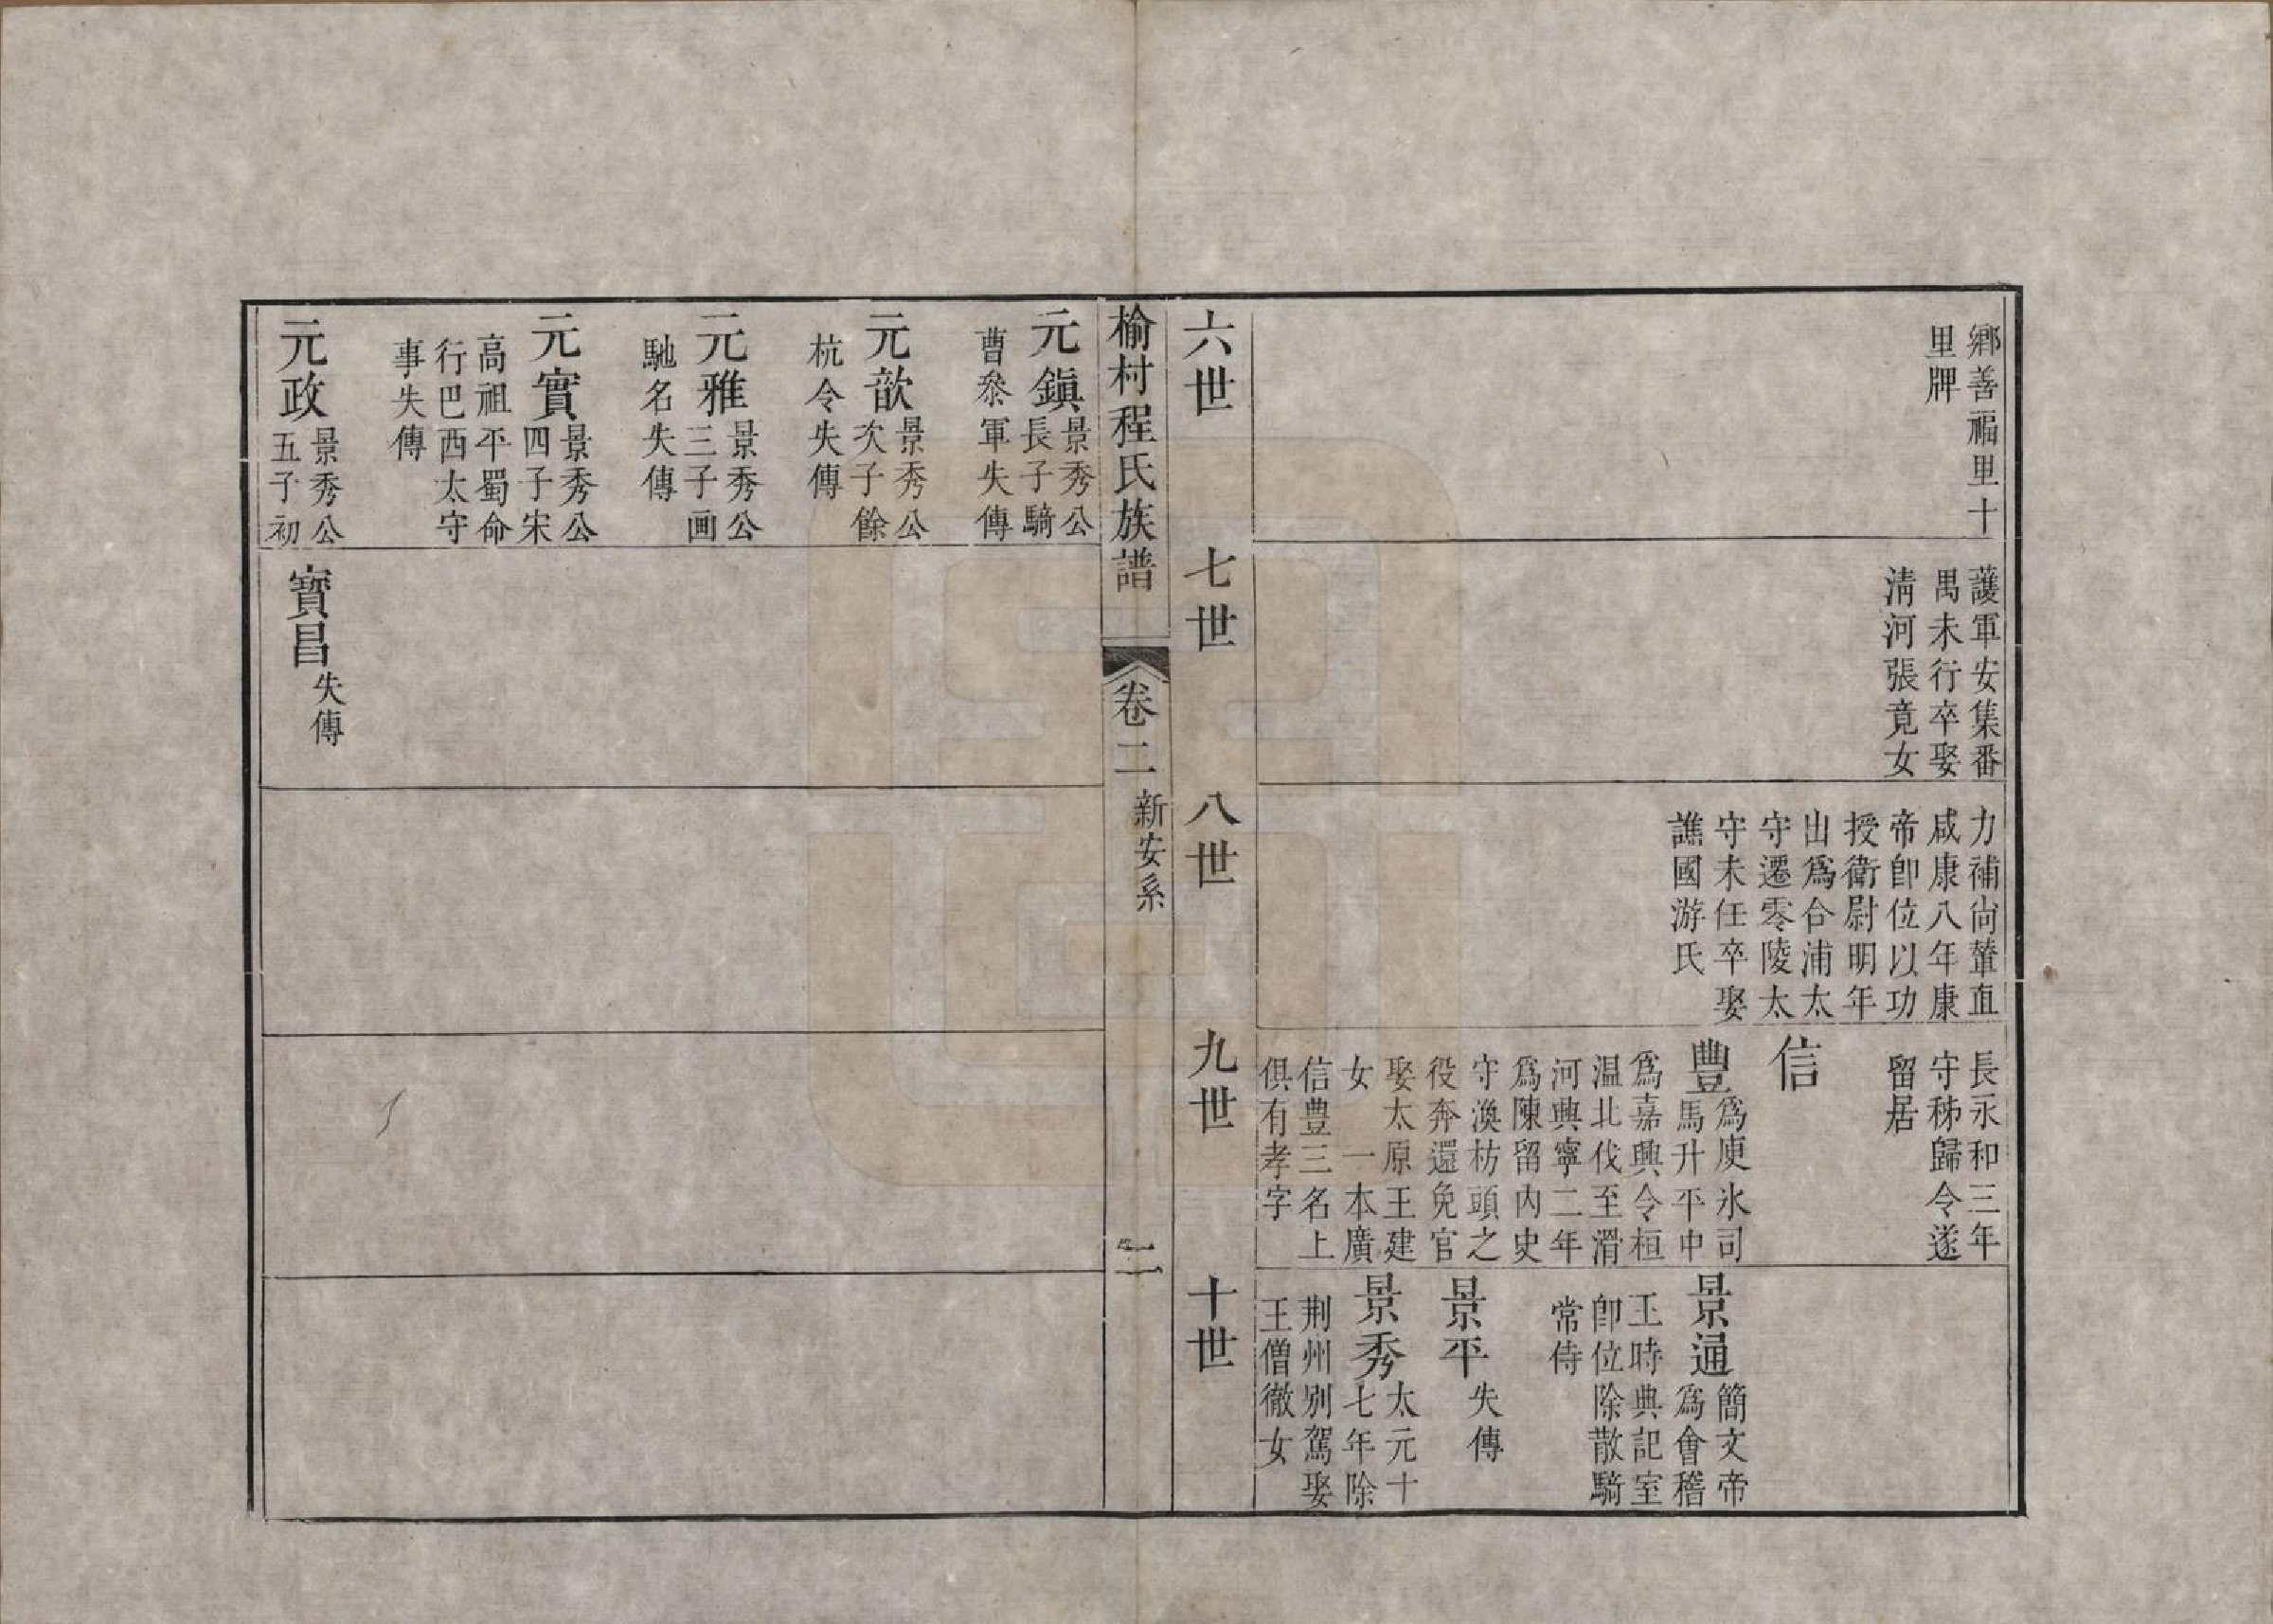 鄉善福里十
里牌
護軍安集番
禺未行卒娶
淸河張竟女
力補尙輦直
咸康八年康
帝卽位以功
授衛尉明年
出爲合浦太
守遷零陵太
守未任卒娶
譙國游氏
長永和三年
守秭歸令遂
留居
信
豐爲庾氷司
馬升平中
爲嘉興令桓
溫北伐至渭
河興寧二年
爲陳留內史
守渙枋頭之
役奔還免官
娶太原王建
女 一本廣
信豐三名上
俱有孝字
景通簡文帝
爲會稽
王時典記室
卽位除散騎
常侍
景平失傳
景秀太元十
七年除
荆州別駕娶
王僧徹女
六世
七世
八世
九世
十世
榆村程氏族譜
卷二 新安系
二
元鎭景秀公
長子騎
曹叅軍失傳
元歆景秀公
次子餘
杭令失傳
元雅景秀公
三子画
馳名失傳
元實景秀公
四子宋
高祖平蜀命
行巴西太守
事失傳
元政景秀公
五子初
寶昌失傳